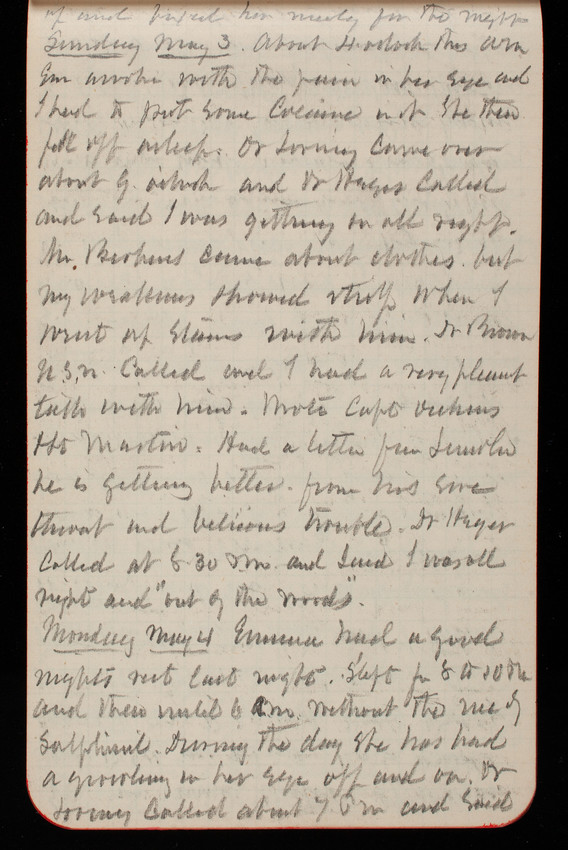 of and fixed her ready for the night
Sunday May 3. About 4 oclock this am
Em awoke with the pain in her eye and
I had to put some Cocaine in it. She then
fell off asleep. Dr Loring came over
about 9. oclock and Dr Hager Called
and said I was getting on all right.
Mr. came about clothes. but
my weakness showed itself when I
went up stairs with him. Dr Brown
U.S.N. Called and I had a very pleasant
talk with him. Wrote Capt
Martin. Had a letter from Lincoln
he is getting better. from his sore
throat and bilious trouble. Dr Hager
Called at 8 30 and said I was all
right and "out of the woods".
Monday May 4 Emma had a good
nights rest last night. Slept fr 8 to 10 Pm
and then until 6 am. without the use of
Sulphonal. During the day she has had
a growling in her eye off and on. Dr
Loring Called about 7 Pm and said